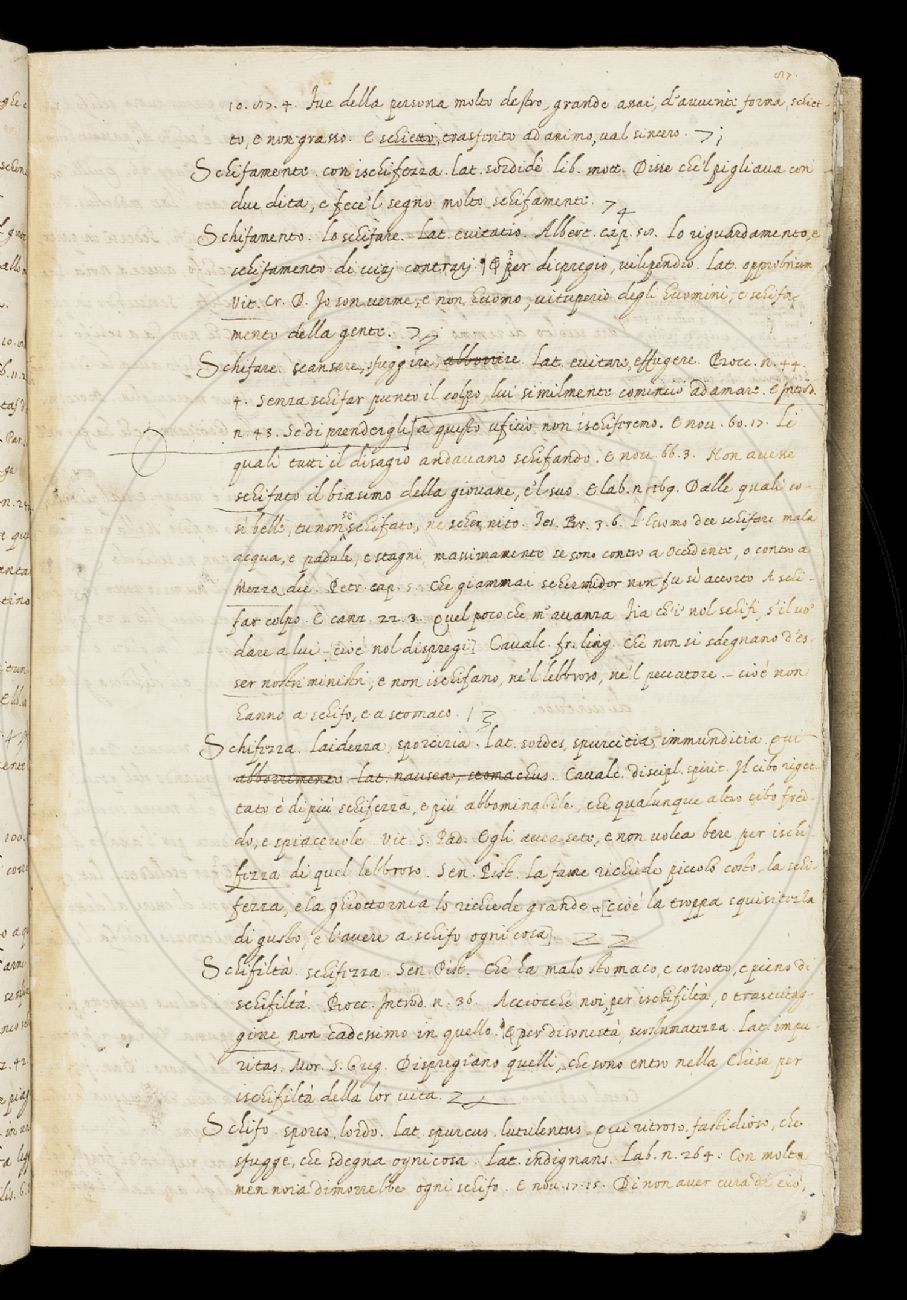 10. 57. 4. Fue della persona molto destro, grande assai, d'avvenẽte forma, schiet-
to, e non grasso. E schietto, trasferito ad animo, val sincero.
Schifamente. con ischifezza. Lat. sordidè. lib. mott. Disse che'l pigliava con
due dita, e fece'l segno molto schifamente.
Schifamento. lo schifare. Lat. evitatio. Albert. cap. 57. Lo riguardamento, e
schifamento di vizj contrarj. ¶ E per dispregio, vilipendio. Lat. opprobrium
Vit. Cr. D. Io son verme, e non huomo, vituperio degli huomini, e schifa-
mento della gente.
Schifare. scansare, sfuggire, abborrire. Lat. evitare, effugere. Bocc. n. 44.
4. senza schifar punto il colpo, lui similmente cominciò ad amare. E Introd.
n. 43. Se di prendergli a questo uficio non ischiferemo. E nov. 60. 17. Li
quali tutti il disagio andavano schifando. E nov. 66. 3. Non avesse
schifato il biasimo della giovane, e'l suo. E lab. n. 269. Dalle quali co-
sì belle, tu non se schifato, ne schernito. Tes. Br. 3. 6. L'huomo dee schifare mala
acqua, e padule, e stagni, massimamente se sono contro a Occidente, o contro a
Mezzo, die. Petr. cap. 5. Che giammai schermidor non fu sì accorto A schi-
far colpo. E canz. 22. 3. Quel poco che m'avanza Fia ch'i' nol schifi, s'il vo'
dare a lui [cioè nol dispregi] Cavalc. fr. ling. Che non si sdegnano d'es-
ser nostri ministri, e non ischifano, nè'l lebbroso, nè'l peccatore - cioè non
hanno a schifo, e a stomaco.
Schifezza. laidezza, sporcizia. Lat. sordes, spurcitia, immunditia. qui
abborrimento Lat. nausea, stomachus. Cavalc. discipl. spirit. Il cibo riget-
tato è di più schifezza, e più abbominabile, che qualunque altro cibo fred-
do, e spiacevole. Vit. S. Pad. Egli avea sete, e non volea bere per ischi-
fezza di quel lebbroso. Sen. Pist. La fame richiede piccolo costo, la schi-
fezza, e la ghiottornia lo richiede grande [cioè la troppa squisitezza
di gusto, e l'avere a schifo ogni cosa]
Schifiltà. schifezza. Sen. Pist. Che ha malo stomaco, e corrotto, e pieno di
schifiltà. Bocc. Introd. n. 36. Acciocchè noi, per ischifiltà, o trascurag-
gine, non cadessimo in quello. ¶ E per disonestà, scostumatezza. Lat. impu-
ritas. Mor. S. Greg. Dispregiano quelli, che sono entro nella Chiesa per
ischifiltà della lor vita.
Schifo. sporco, lordo. Lat. spurcus, lutulentus. Qui ritroso, fastidioso, che
sfugge, che sdegna ogni cosa. Lat. indignans. Lab. n. 264. Con molta
men noia dimorrebbe ogni schifo. E nov. 17. 15. Di non aver cura di ciò,